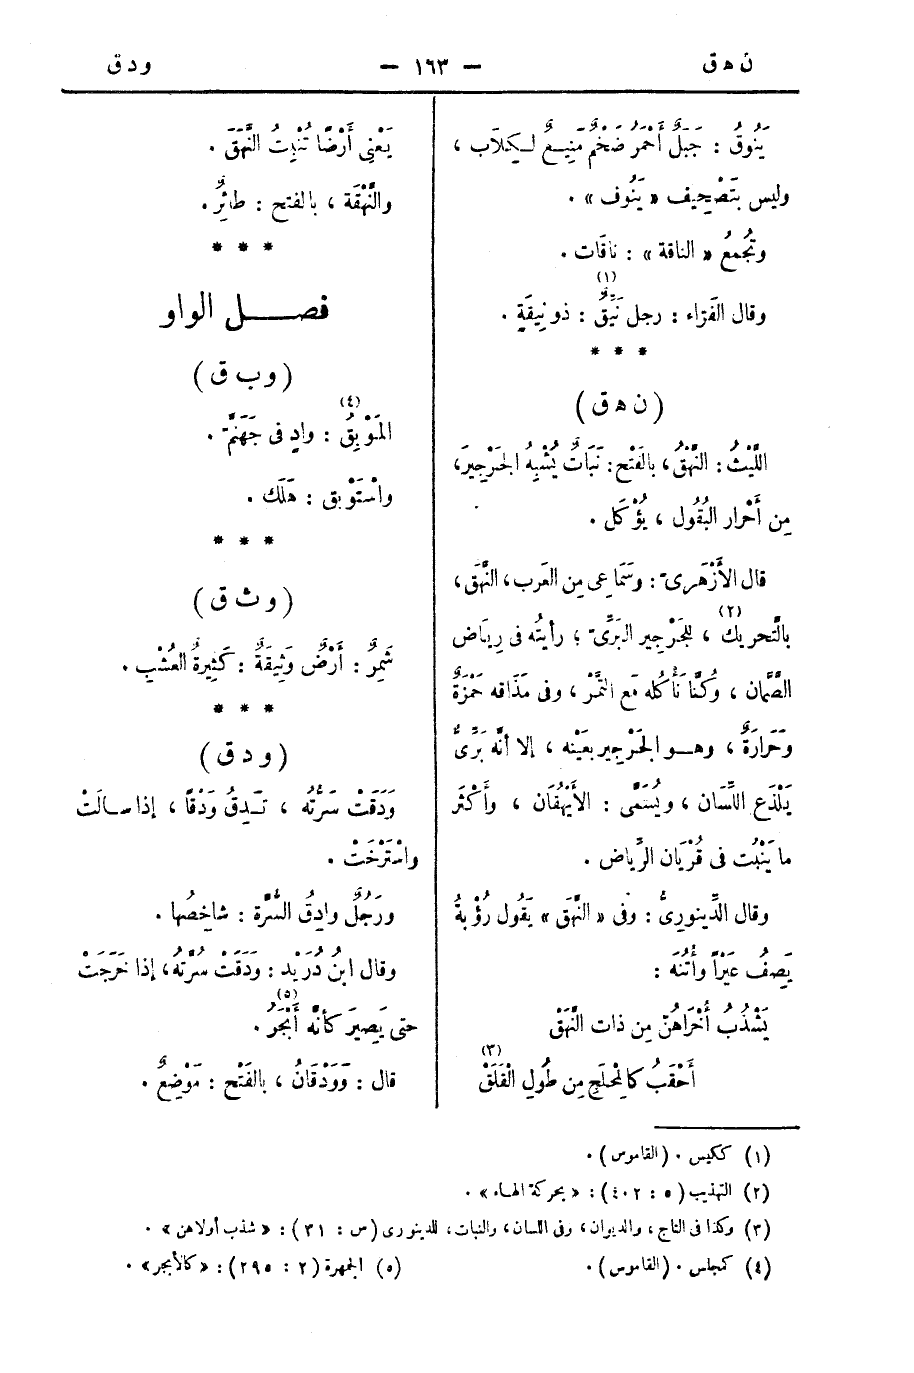 ن ه ق — ١٦٣ — و د ق
يَنُوقُ : جَبَلٌ أَحْمَرُ ضَخْمٌ مَنِيعٌ لِكِلاَب ،
وليس بتَصْحِيف « يَنُوف » .
وتُجْمَعُ « الناقة » : ناقَات .
وقال الفَرّاء : رجل نَيِّقٌ (١) : ذو نِيقَةٍ .
* * *
( ن ه ق )
اللَّيْثُ : النَّهْقُ ، بالفَتْح : نَبَاتٌ يُشْبِهُ الجَرْجِيرَ ،
مِن أَحْرار البُقُول ، يُؤْكَل .
قال الأَزْهَرىّ : وسَمَاعِى مِن العَرب ، النَّهَق ،
بالتَّحريك (٢) ، لِلجَرْجِير البَرِّىّ ؛ رأيتُه فى رِيَاض
الصَّمَّان ، وكُنَّا نَأْكُله مَع التَّمْر ، وفى مَذَاقه حَمْزَةٌ
وحَرارَةٌ ، وهـو الجَرْجِير بعَيْنه ، إلا أنَّه بَرِّىٌّ
يَلْذَع اللِّسَان ، ويُسَمَّى : الأَيْهُقَان ، وأَكْثَر
ما يَنْبُت فى قُرْيَان الرِّيَاض .
وقال الدِّينورىُّ : وفى « النَّهَق » يَقُول رُؤْبةُ
يَصِفُ عَيْرًا وأُتُنَه :
يَشْذِبُ أُخْرَاهُنّ مِن ذات النَّهَقْ
أَحْقَبُ كالمِحْلَجِ مِن طُولِ الْقَلَقْ (٣)
يَعْنِى أَرْضًا تُنْبِتُ النَّهَقَ .
والنَّهْقَة ، بالفتح : طائِرٌ .
* * *
فصـل الواو
( و ب ق )
المَوْبِقُ (٤) : وادٍ فى جَهَنَّمَ .
واسْتَوْبق : هَلَك .
* * *
( و ث ق )
شَمِرٌ : أَرْضٌ وَثِيقَةٌ : كَثِيرةُ العُشْبِ .
* * *
( و د ق )
وَدَقَتْ سُرَّتُه ، تَـدِقُ وَدْقًا ، إذا سـالَتْ
واسْتَرْخَتْ .
ورَجُلٌ وادِقُ السُّرَّة : شاخِصُها .
وقال ابنُ دُرَيْد : ودَقَتْ سُرَّتُه ، إذا خَرَجَتْ
حتى يَصِيرَ كأنَّه أَبْجَرُ (٥) .
قال : ووَدْقَانُ ، بالفَتْح : مَوْضِعٌ .
(١) ككيس . (القاموس) .
(٢) التهذيب (٥ : ٤٠٢) : « بحركة الهاء » .
(٣) وكذا فى التاج ، والديوان ، وفى اللسان ، والنبات ، للدينورى (س : ٣١) : « شذب أولاهن » .
(٤) كمجلس . (القاموس) .
(٥) الجمهرة (٢ : ٢٩٥) : « كالأبجر » .